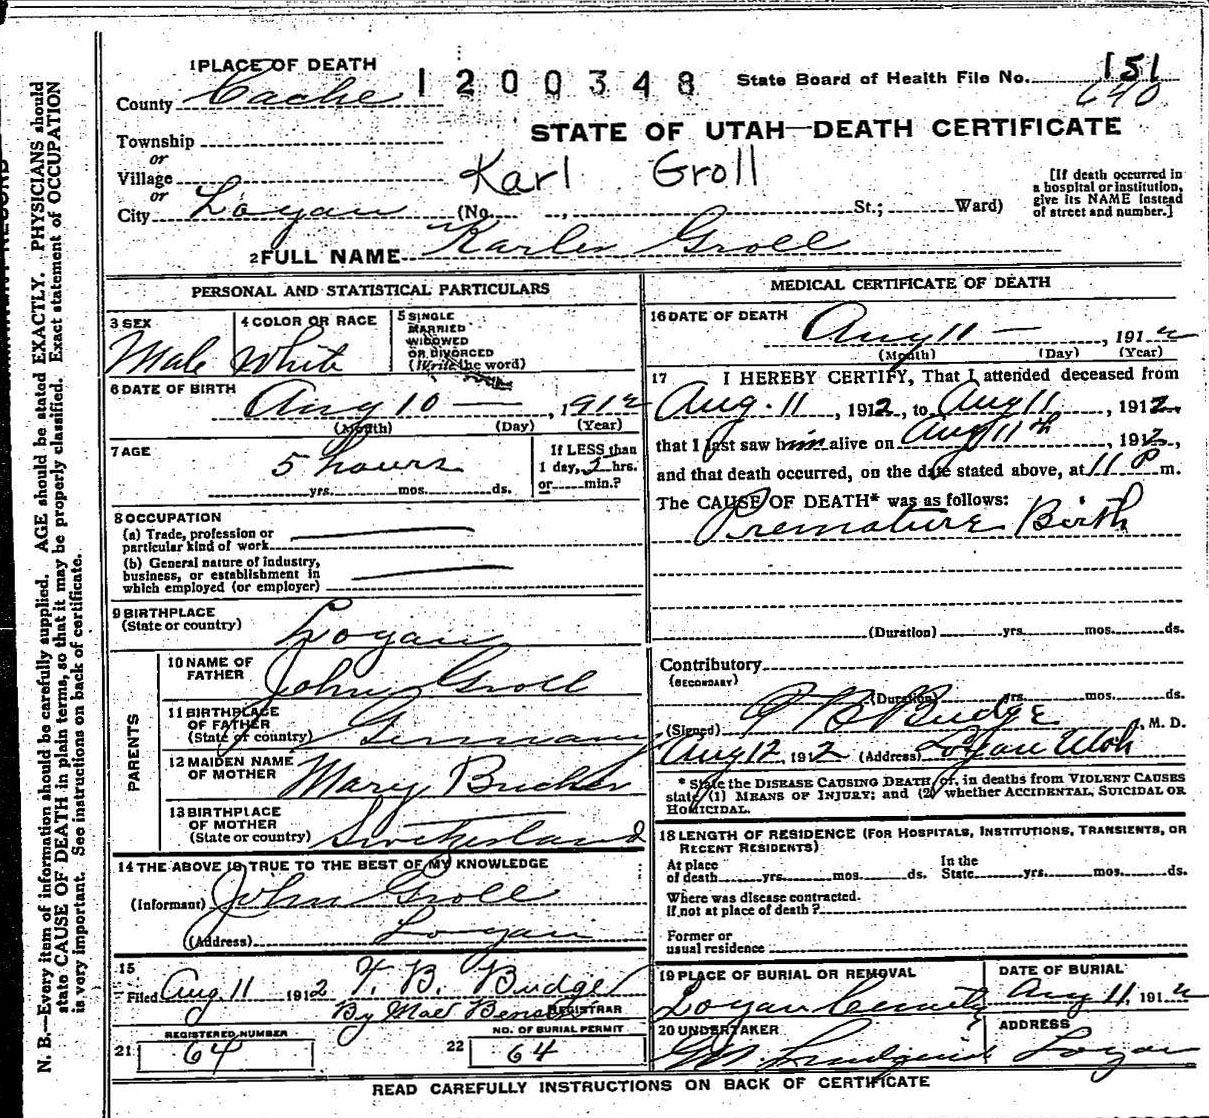 1 PLACE OF DEATH
1200348
State Board of Health File No. 151
640
County Cache
STATE OF UTAH—DEATH CERTIFICATE
Township
or
Village
or
City Logan (No. , St.; Ward)
Karl Groll
[If death occurred in a hospital or institution, give its NAME instead of street and number.]
2 FULL NAME Karler Groll
PERSONAL AND STATISTICAL PARTICULARS
3 SEX
Male
4 COLOR OR RACE
White
5 SINGLE
MARRIED
WIDOWED
OR DIVORCED
(Write the word)
6 DATE OF BIRTH
Aug 10 — , 1912
(Month) (Day) (Year)
7 AGE
5 hours
yrs. mos. ds.
If LESS than
1 day, hrs.
or min.?
8 OCCUPATION
(a) Trade, profession or
particular kind of work
(b) General nature of industry,
business, or establishment in
which employed (or employer)
9 BIRTHPLACE
(State or country) Logan
PARENTS
10 NAME OF
FATHER John Groll
11 BIRTHPLACE
OF FATHER
(State or country) Germany
12 MAIDEN NAME
OF MOTHER Mary Bucher
13 BIRTHPLACE
OF MOTHER
(State or country) Switzerland
14 THE ABOVE IS TRUE TO THE BEST OF MY KNOWLEDGE
(Informant) John Groll
(Address) Logan
15
Filed Aug. 11 1912 T. B. Budge
REGISTRAR
By
REGISTERED NUMBER
21 64
NO. OF BURIAL PERMIT
22 64
MEDICAL CERTIFICATE OF DEATH
16 DATE OF DEATH
Aug 11 — , 1912
(Month) (Day) (Year)
17 I HEREBY CERTIFY, That I attended deceased from
Aug. 11 , 1912, to Aug 11 , 1912,
that I last saw him alive on Aug 11th , 1912,
and that death occurred, on the date stated above, at 11 P m.
The CAUSE OF DEATH* was as follows:
Premature Birth
(Duration) yrs. mos. ds.
Contributory
(SECONDARY)
(Duration) yrs. mos. ds.
(Signed) Budge , M. D.
Aug 12 1912 (Address) Logan Utah
* State the DISEASE CAUSING DEATH, or, in deaths from VIOLENT CAUSES
state (1) MEANS OF INJURY; and (2) whether ACCIDENTAL, SUICIDAL OR
HOMICIDAL.
18 LENGTH OF RESIDENCE (FOR HOSPITALS, INSTITUTIONS, TRANSIENTS, OR
RECENT RESIDENTS)
At place
of death yrs. mos. ds.
In the
State yrs. mos. ds.
Where was disease contracted.
If not at place of death?
Former or
usual residence
19 PLACE OF BURIAL OR REMOVAL
Logan
DATE OF BURIAL
Aug 11, 1912
20 UNDERTAKER
ADDRESS
Logan
READ CAREFULLY INSTRUCTIONS ON BACK OF CERTIFICATE
N. B.—Every item of information should be carefully supplied. AGE should be stated EXACTLY. PHYSICIANS should
state CAUSE OF DEATH in plain terms, so that it may be properly classified. Exact statement of OCCUPATION
is very important. See instructions on back of certificate.